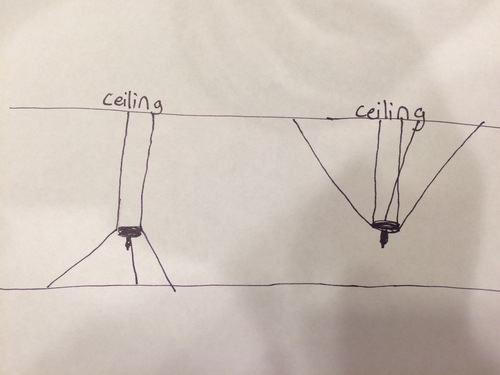 ceiling
ceiling